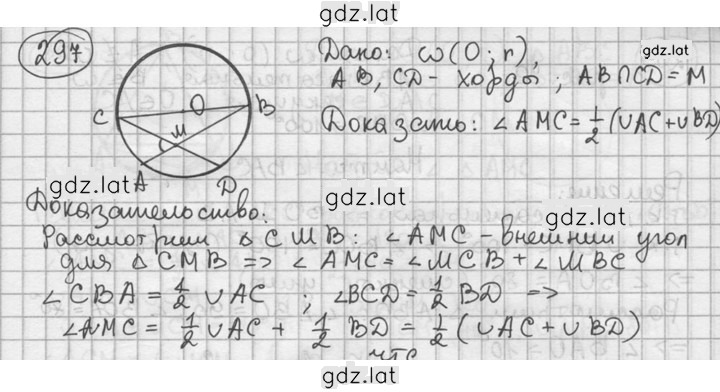 gdz.lat
297
Дано: ω(O; r),
AB, CD - хорды; AB∩CD = M
gdz.lat
O B
C
M
A D
Доказать: ∠AMC = 1/2 (∪AC+∪BD)
gdz.lat
gdz.lat
Доказательство:
gdz.lat
Рассмотрим △CMB: ∠AMC - внешний угол
для △CMB => ∠AMC = ∠MCB + ∠MBC
∠CBA = 1/2 ∪AC ; ∠BCD = 1/2 BD =>
∠AMC = 1/2 ∪AC + 1/2 BD = 1/2 (∪AC + ∪BD)
чтд
gdz.lat